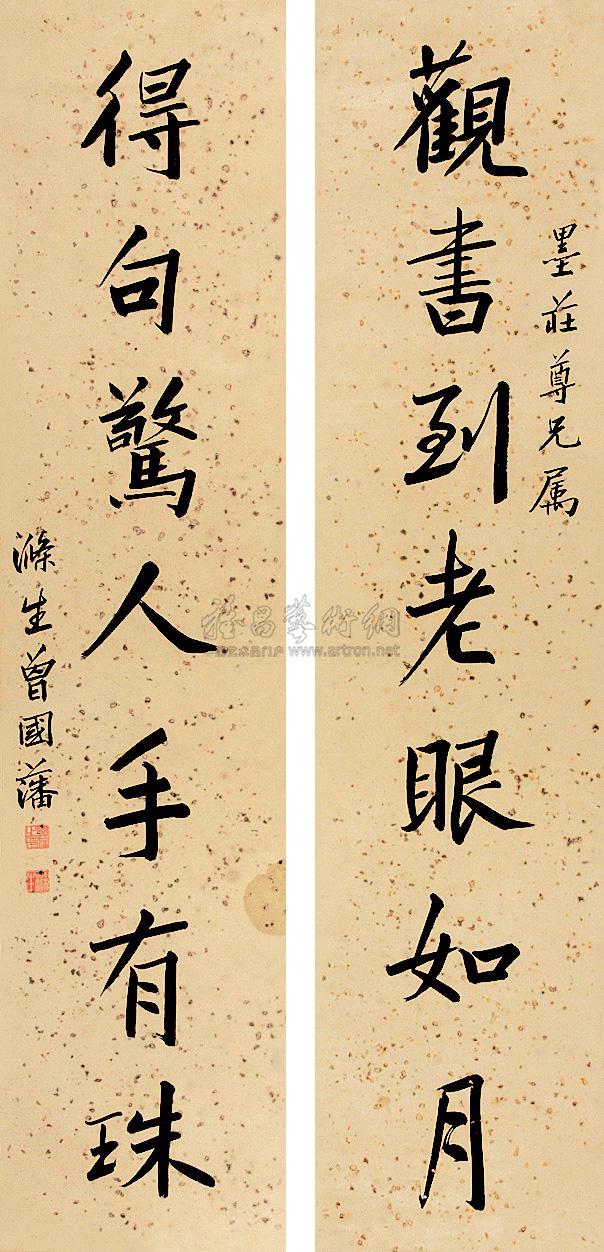 觀書到老眼如月
墨莊尊兄属
得句驚人手有珠
滌生曾國藩
www.artron.net